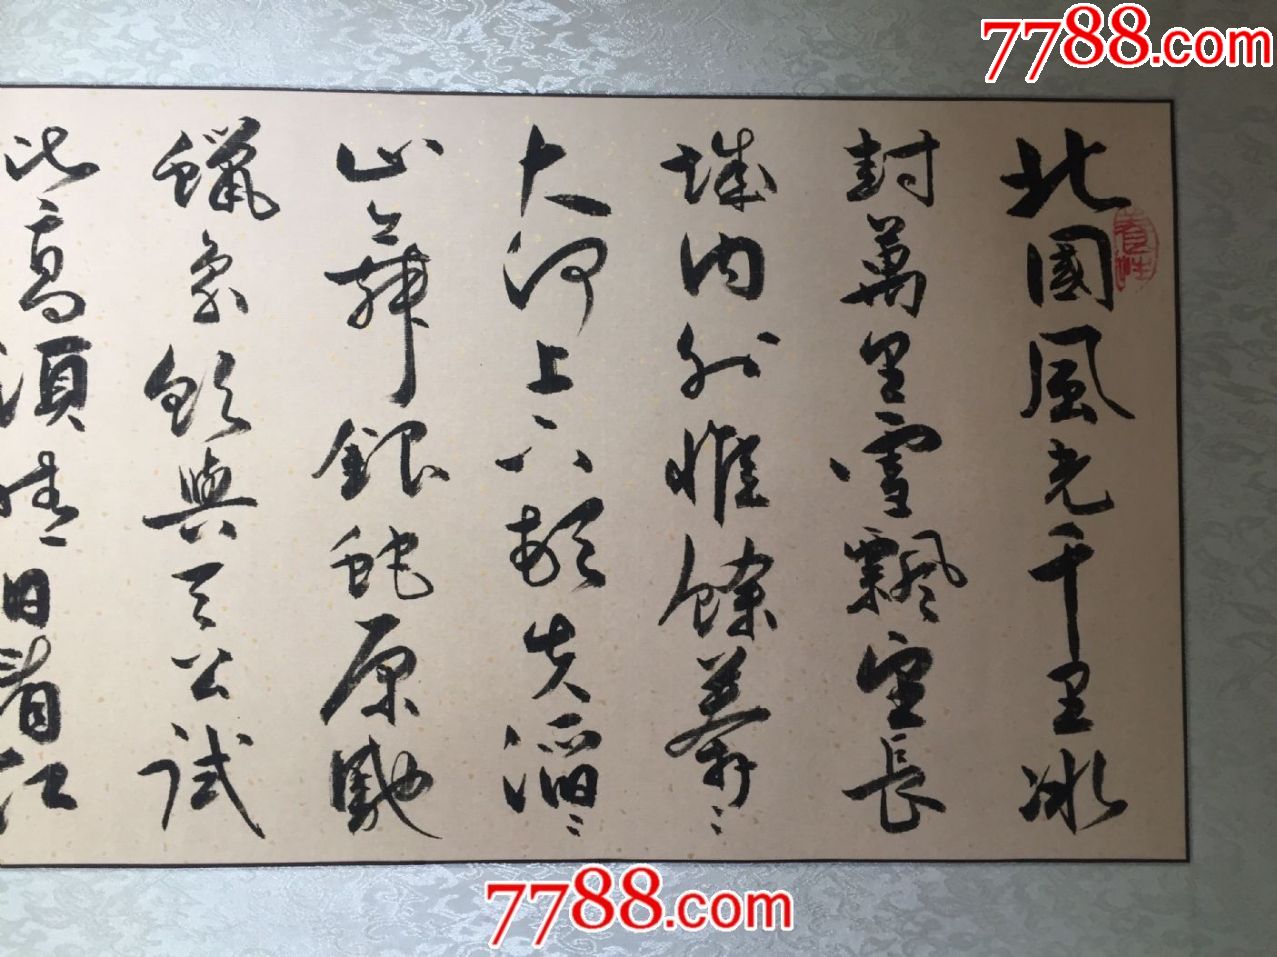 7788.com
養性
北國風光千里冰
封萬里雪飄望長
城内外惟餘莽〻
大河上下頓失滔〻
山舞銀蛇原馳
蠟象欲與天公試
比高須晴日看紅
7788.com